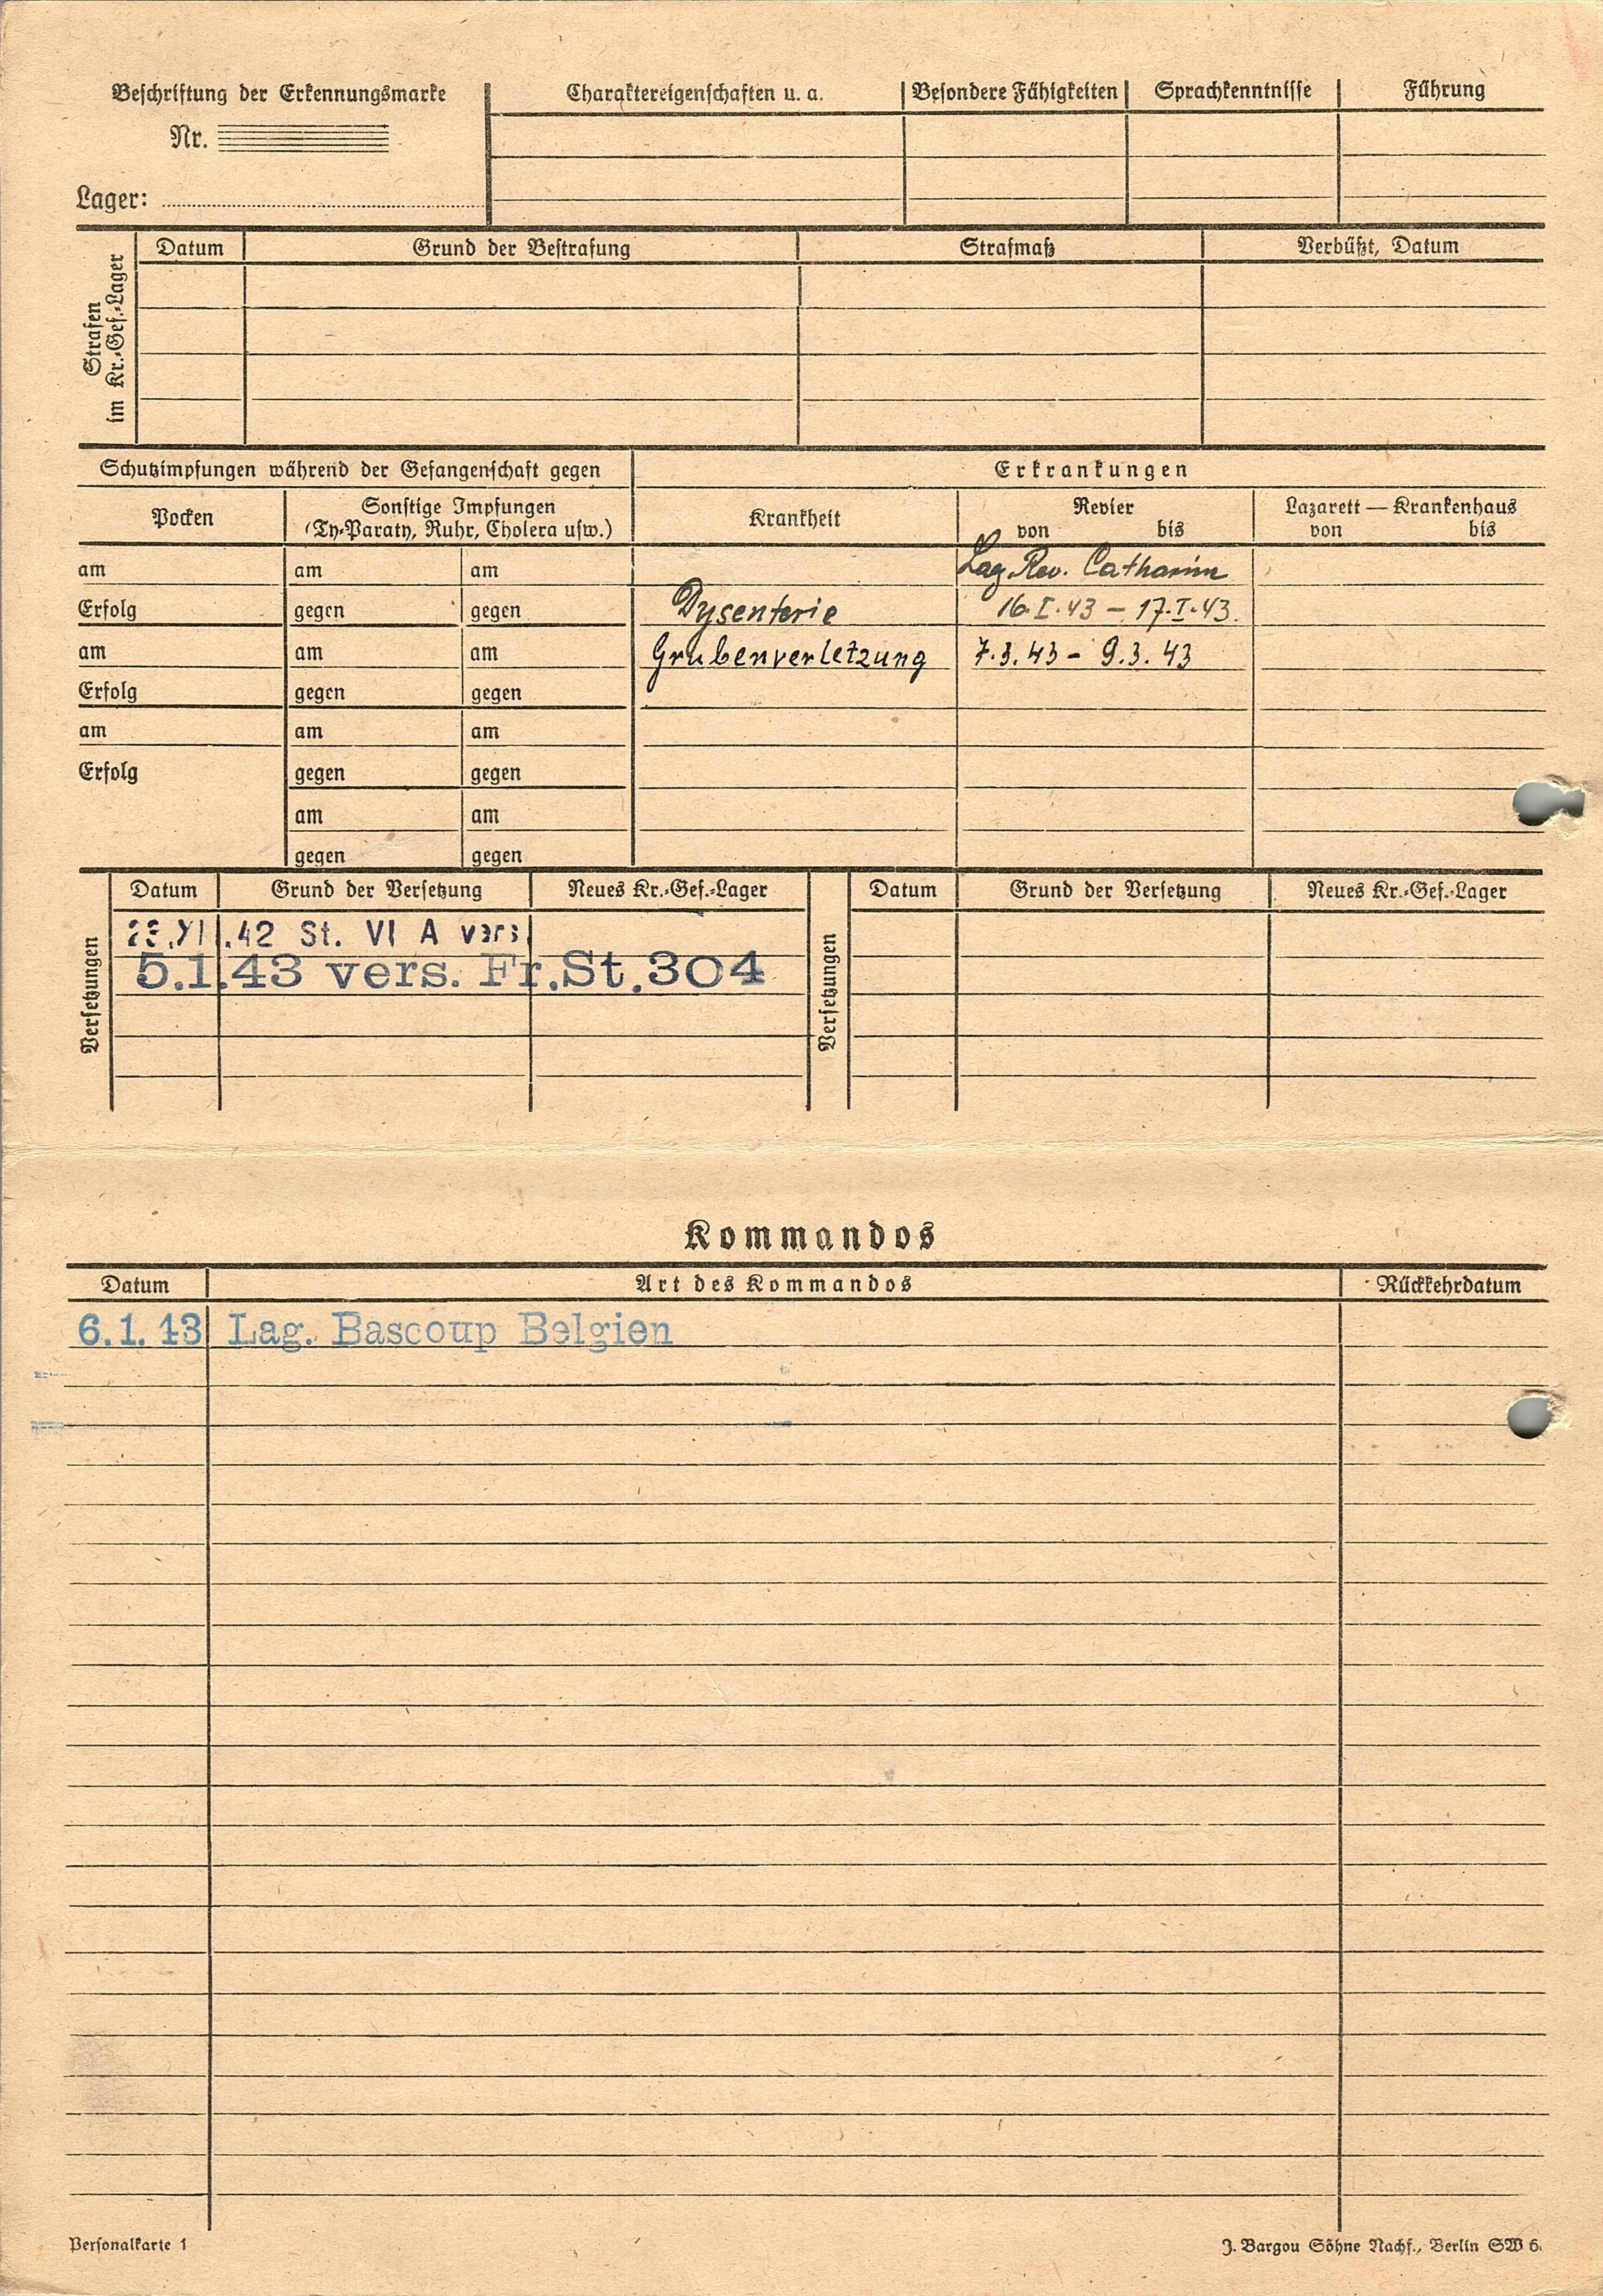 Beschriftung der Erkennungsmarke
Nr.
Lager:
Charaktereigenschaften u. a.
Besondere Fähigkeiten
Sprachkenntnisse
Führung
Strafen
im Kr.-Gef.-Lager
Datum
Grund der Bestrafung
Strafmaß
Verbüßt, Datum
Schutzimpfungen während der Gefangenschaft gegen
Erkrankungen
Pocken
Sonstige Impfungen
(Ty-Paraty, Ruhr, Cholera usw.)
Krankheit
Revier
von bis
Lazarett — Krankenhaus
von bis
am am am Lag. Rev.
Erfolg gegen gegen Dysenterie 16.I.43 – 17.I.43.
am am am Grubenverletzung 7.3.43 – 9.3.43
Erfolg gegen gegen
am am am
Erfolg gegen gegen
am am
gegen gegen
Versetzungen
Datum Grund der Versetzung Neues Kr.-Gef.-Lager
.XI.42 St. VI A vers.
5.1.43 vers. Fr.St.304
Versetzungen
Datum Grund der Versetzung Neues Kr.-Gef.-Lager
Kommandos
Datum Art des Kommandos Rückkehrdatum
6.1.43 Lag. Bascoup Belgien
Personalkarte 1
J. Bargou Söhne Nachf., Berlin SW 6